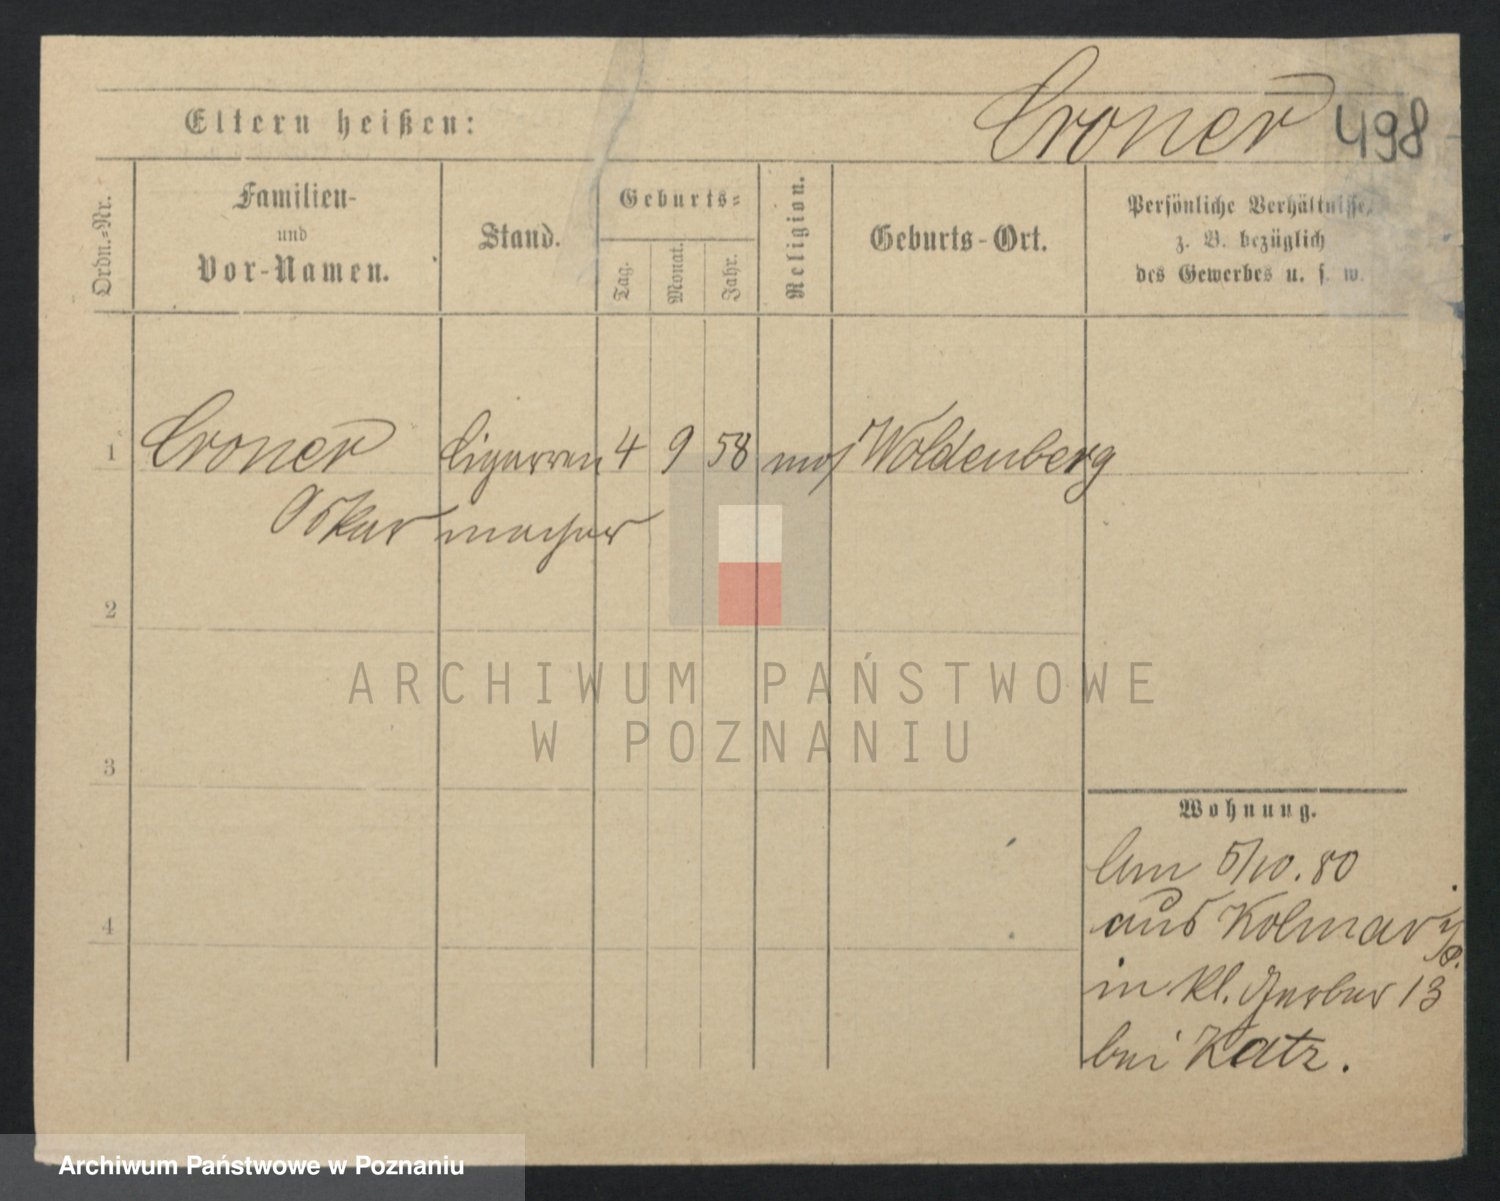 Eltern heißen:
Croner 498
Ordn.-Nr.
Familien-
und
Vor-Namen.
Stand.
Geburts-
Tag.
Monat.
Jahr.
Religion.
Geburts-Ort.
Persönliche Verhältnisse,
z. B. bezüglich
des Gewerbes u. s. w.
1 Croner Cigarren 4 9 58 mos Woldenberg
Oskar macher
2
3
4
ARCHIWUM PAŃSTWOWE
W POZNANIU
Wohnung.
Am 5/10.80
aus Kolmar i/P.
in Kl. Gerber 13
bei Katz.
Archiwum Państwowe w Poznaniu